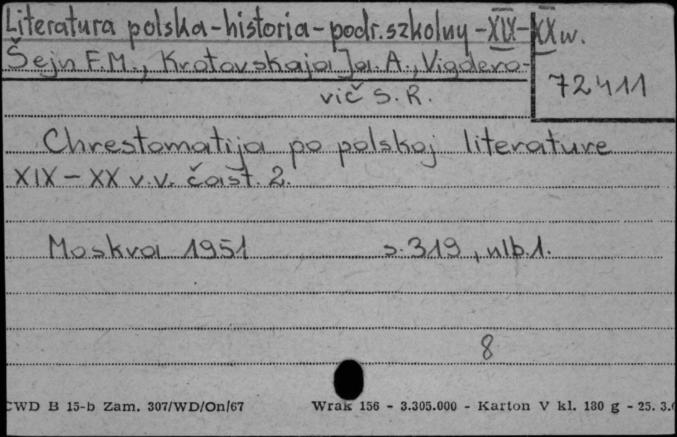 Literatura polska-historia-podr. szkolny-XIX-XX w.
Šejn F.M., Krotovskaja Ja. A., Vigdero-
vič S. R.
72411
Chrestomatija po polskoj literature
XIX-XX v.v. čast. 2.
Moskva 1951 s. 319, nlb. 1.
8
CWD B 15-b Zam. 307/WD/On/67 Wrak 156 - 3.305.000 - Karton V kl. 180 g - 25. 3.6